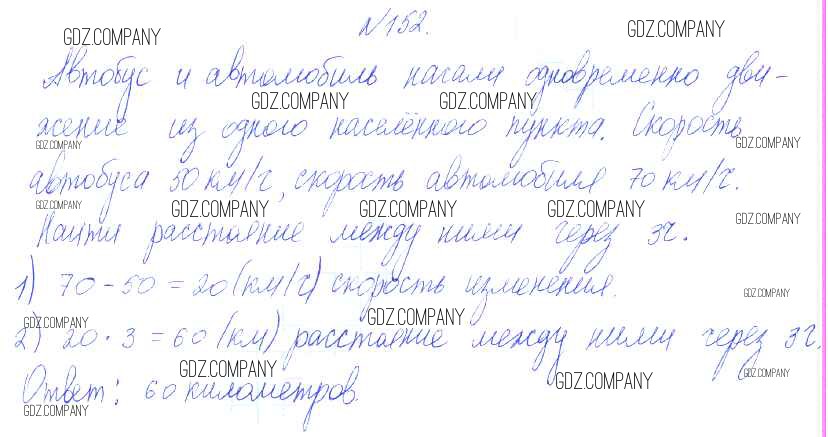 №152.
GDZ.COMPANY GDZ.COMPANY
Автобус и автомобиль начали одновременно дви-
GDZ.COMPANY GDZ.COMPANY
жение из одного населённого пункта. Скорость
GDZ.COMPANY GDZ.COMPANY
автобуса 50 км/ч, скорость автомобиля 70 км/ч.
GDZ.COMPANY GDZ.COMPANY GDZ.COMPANY GDZ.COMPANY GDZ.COMPANY
Найти расстояние между ними через 3ч.
1) 70 - 50 = 20 (км/ч) скорость изменения.
GDZ.COMPANY
GDZ.COMPANY GDZ.COMPANY
2) 20 · 3 = 60 (км) расстояние между ними через 3ч.
GDZ.COMPANY GDZ.COMPANY GDZ.COMPANY
Ответ: 60 километров.
GDZ.COMPANY